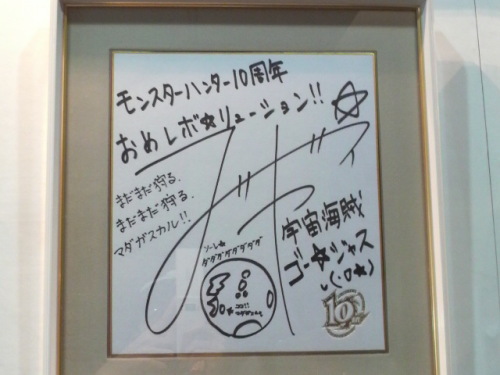 モンスターハンター10周年
おめレボ☆リューション!!
まだまだ狩る、
まだまだ狩る、
マダガスカル!!
ソーレ☆
ダダダダダダダダ
宇宙海賊
ゴー☆ジャス
10